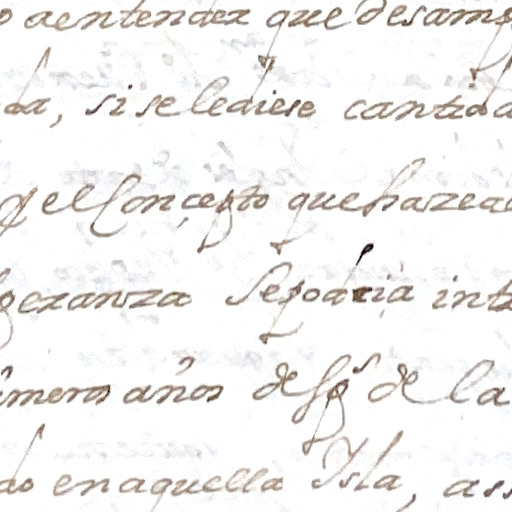 o aentender que desamp
da, si se lediese cantida
q el Conçepto que haze de
peranza Se podria int
imeros años desp^s de la
do en aquella Isla, ass